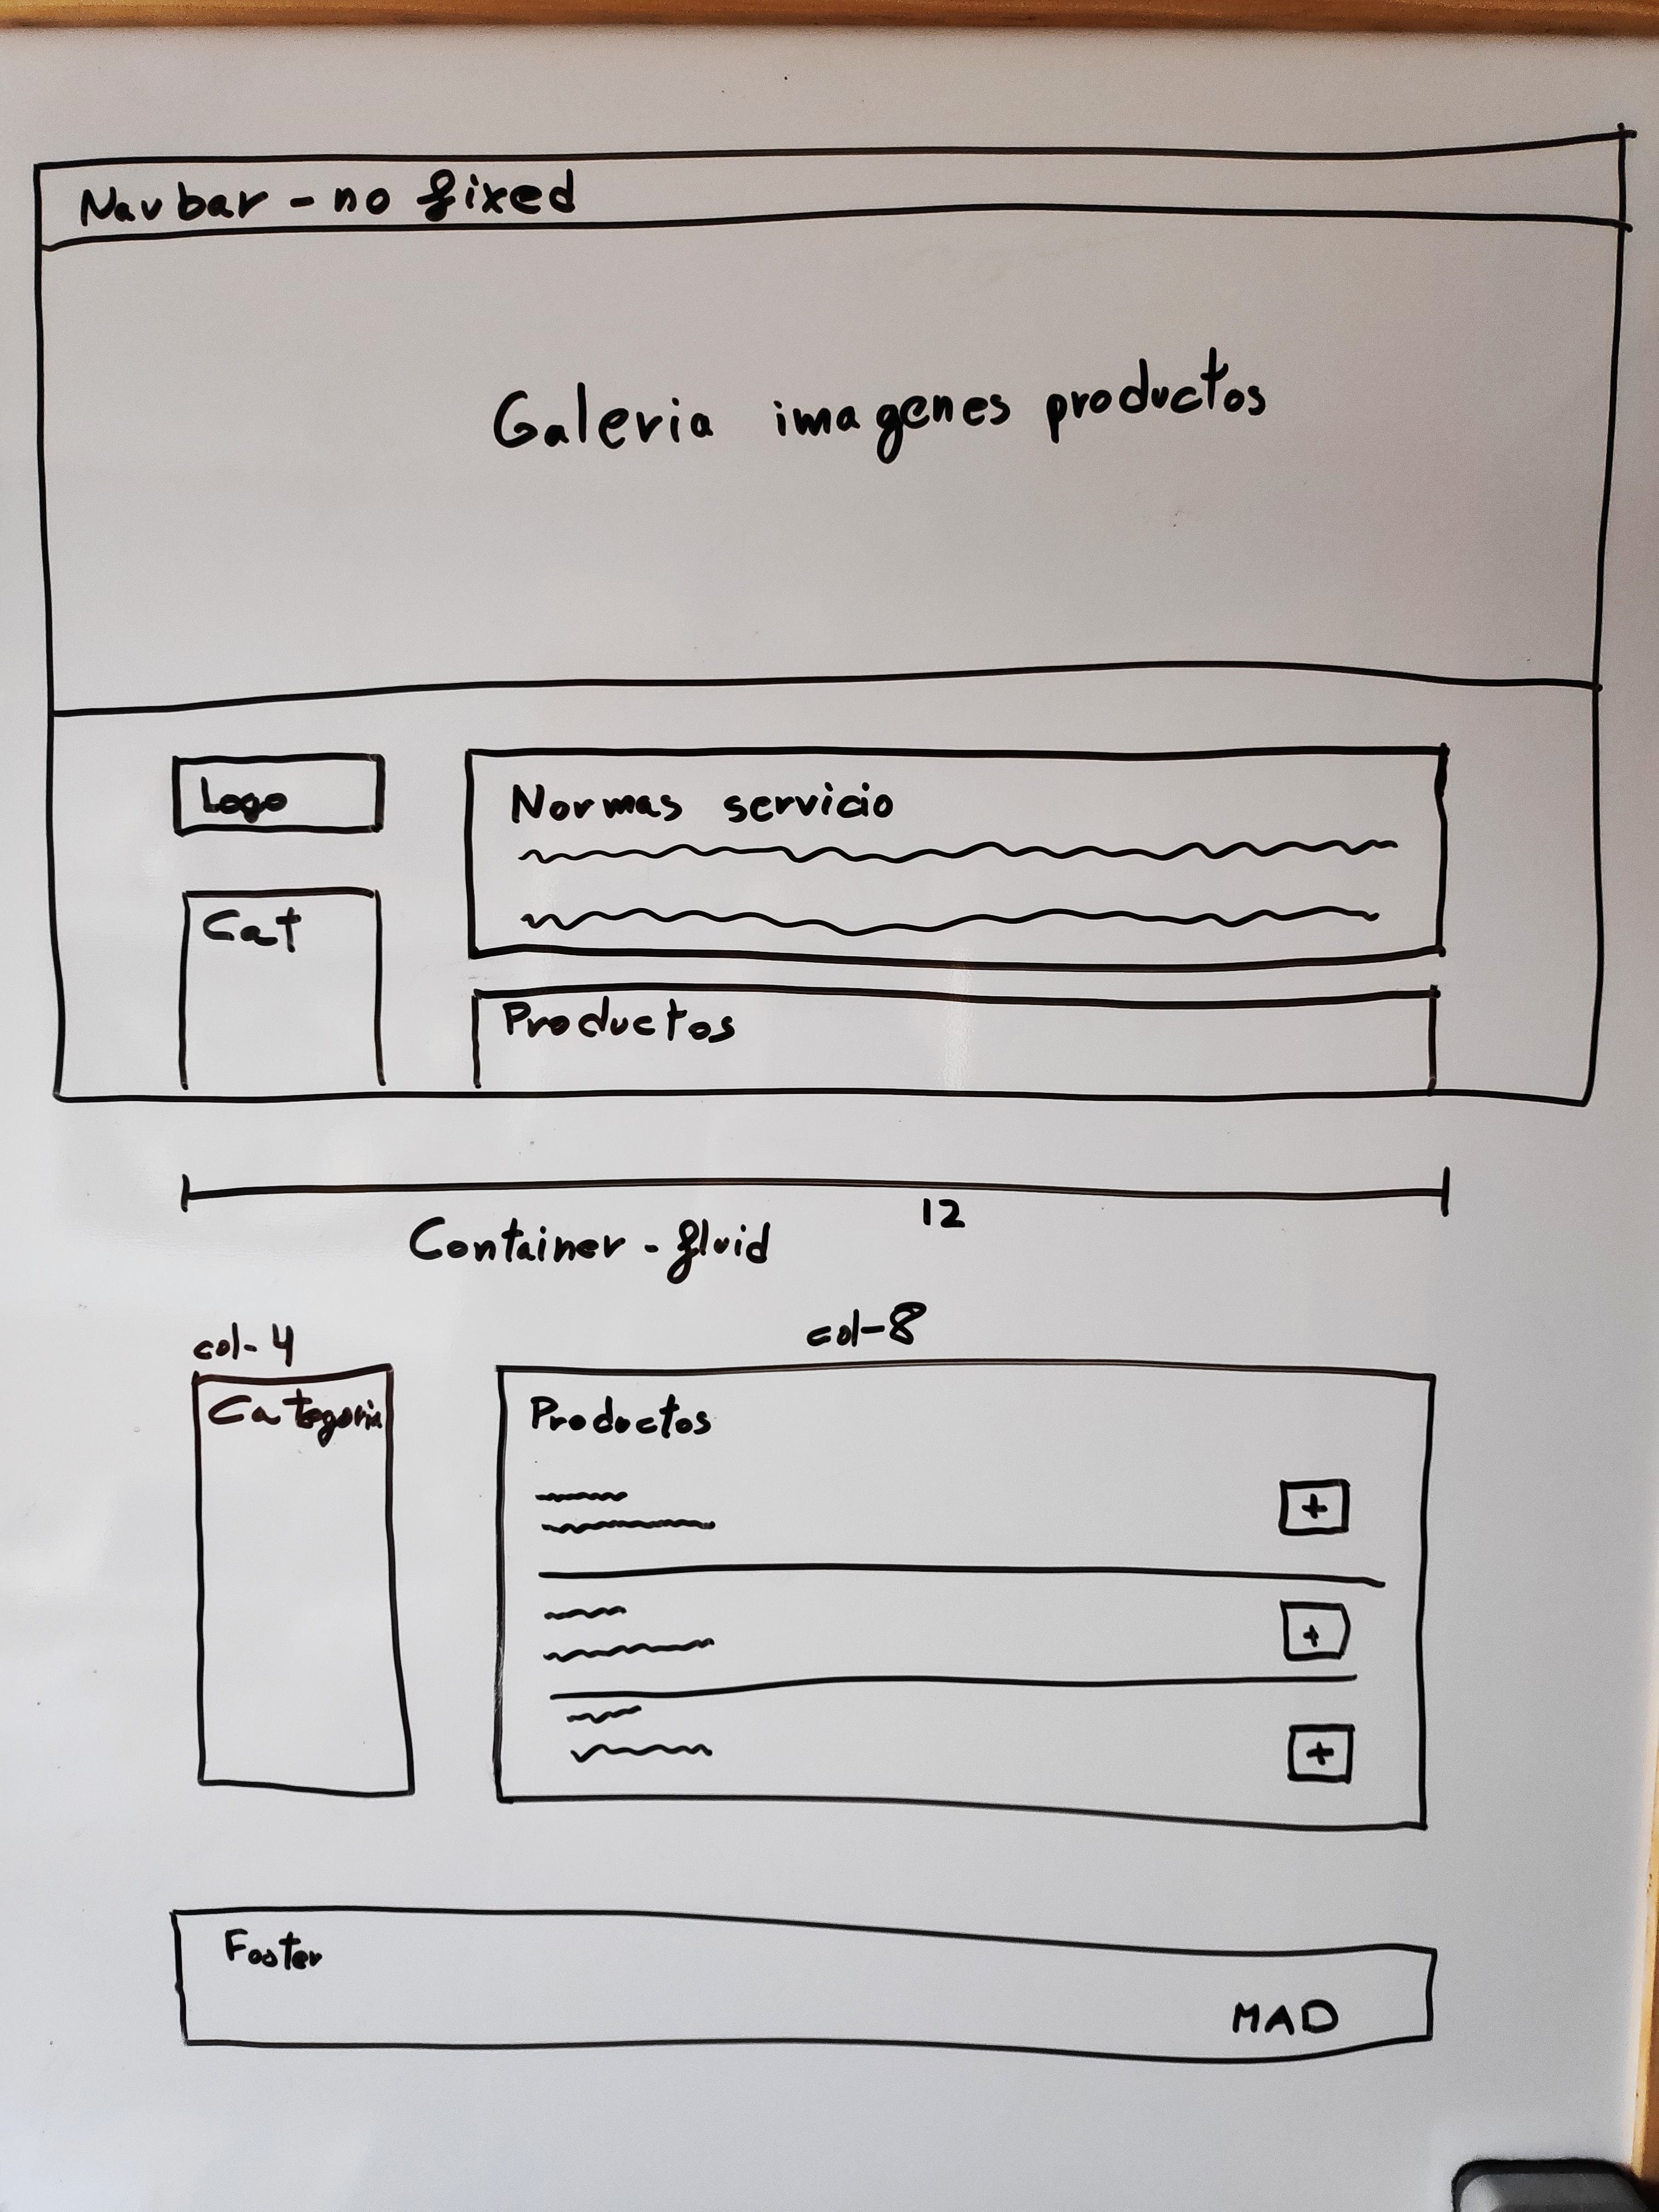 Navbar - no fixed
Galeria imagenes productos
Logo
Normas servicio
Cat
Productos
12
Container - fluid
col-4
col-8
Categoria
Productos
+
+
+
Footer
MAD